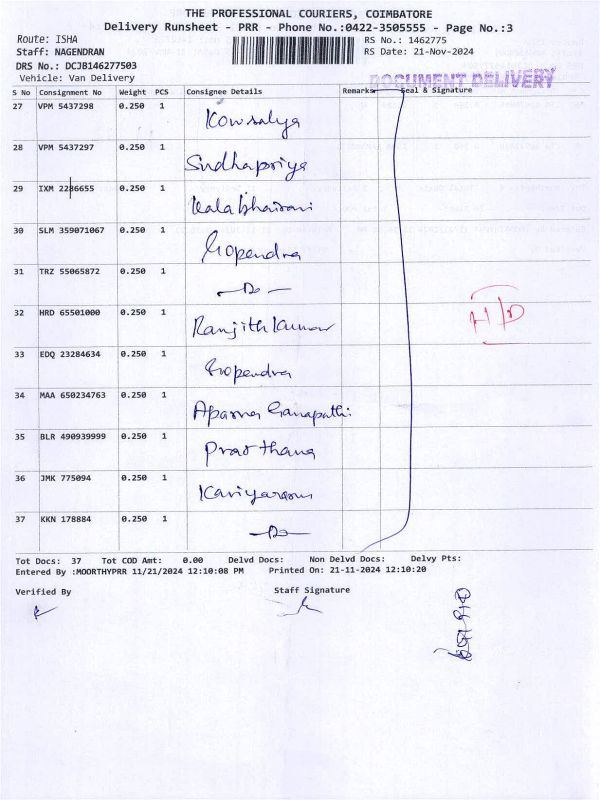 THE PROFESSIONAL COURIERS, COIMBATORE
Delivery Runsheet - PRR - Phone No.:0422-3505555 - Page No.:3
Route: ISHA RS No.: 1462775
Staff: NAGENDRAN RS Date: 21-Nov-2024
DRS No.: DCJB146277503
Vehicle: Van Delivery DOCUMENT DELIVERY
S No Consignment No Weight PCS Consignee Details Remarks Seal & Signature
27 VPM 5437298 0.250 1 Kowsalya
28 VPM 5437297 0.250 1 Sudhapriya
29 IXM 2286655 0.250 1 Kalabhairavi
30 SLM 359071067 0.250 1 Gopendra
31 TRZ 55065872 0.250 1 -Do-
32 HRD 65501000 0.250 1 Ranjith Kumar
33 EDQ 23284634 0.250 1 Gopendra
34 MAA 650234763 0.250 1 Aparna Ganapathi
35 BLR 490939999 0.250 1 Prarthana
36 JMK 775094 0.250 1
37 KKN 178884 0.250 1 -Do-
H/D
Tot Docs: 37 Tot COD Amt: 0.00 Delvd Docs: Non Delvd Docs: Delvy Pts:
Entered By :MOORTHYPRR 11/21/2024 12:10:08 PM Printed On: 21-11-2024 12:10:20
Verified By Staff Signature